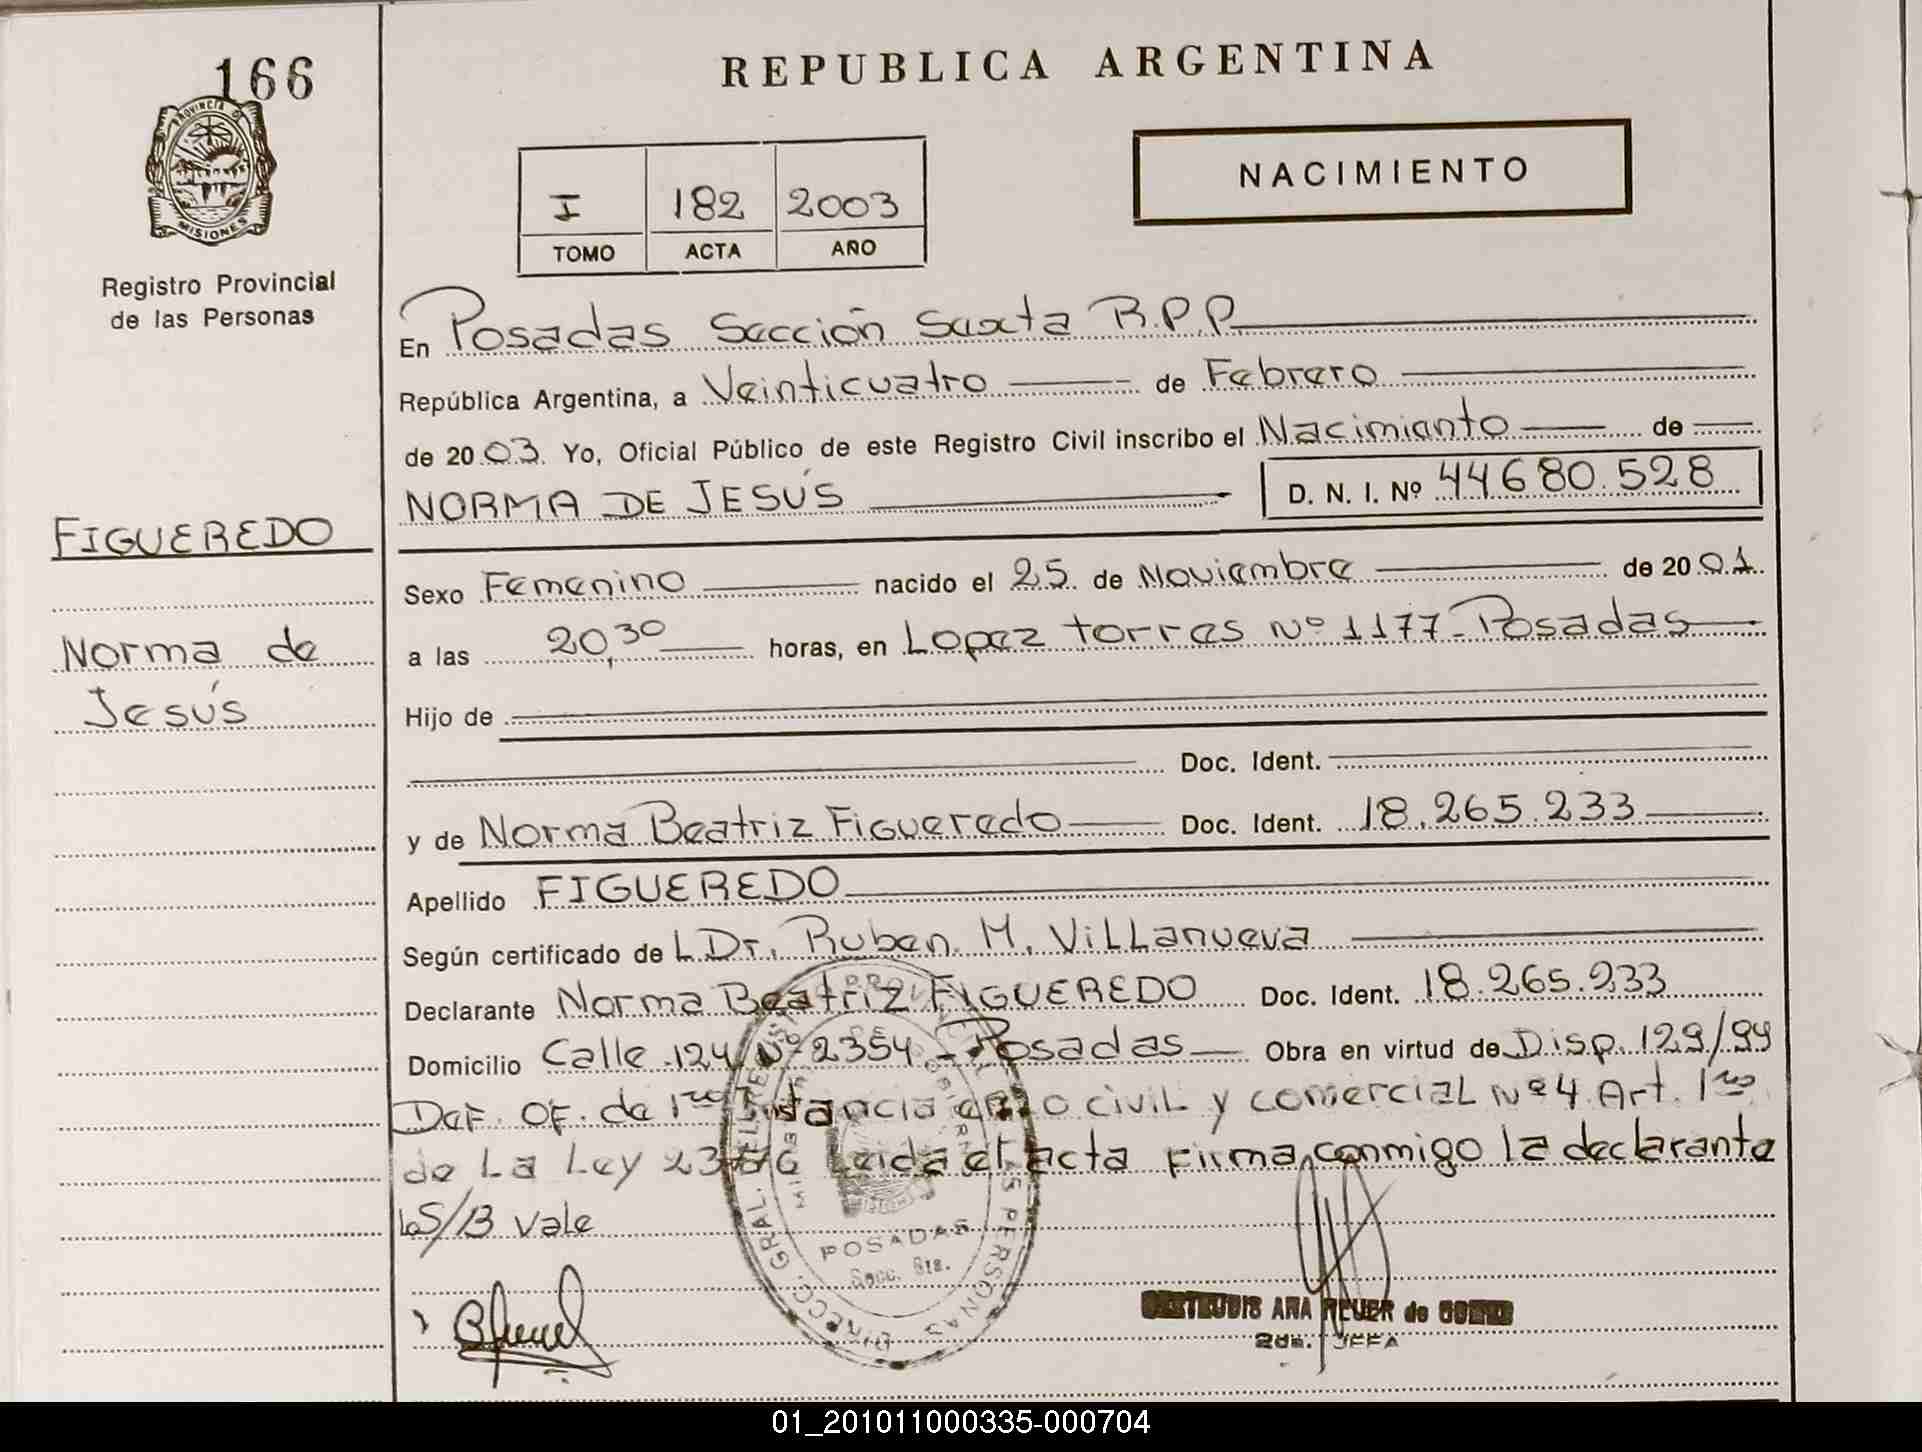 166
REPUBLICA ARGENTINA
PROVINCIA DE
MISIONES
NACIMIENTO
I 182 2003
TOMO ACTA AÑO
Registro Provincial
de las Personas
En Posadas Sección Sexta R.P.P
República Argentina, a Veinticuatro de Febrero
de 2003. Yo, Oficial Público de este Registro Civil inscribo el Nacimiento de
NORMA DE JESÚS D. N. I. Nº 44680.528
FIGUEREDO
Sexo Femenino nacido el 25 de Noviembre de 2001.
Norma de
Jesús
a las 20,30 horas, en Lopez torres Nº 1177-Posadas
Hijo de
Doc. Ident.
y de Norma Beatriz Figueredo Doc. Ident. 18.265.233
Apellido FIGUEREDO
Según certificado de L Dr. Ruben M. Villanueva
Declarante Norma Beatriz FIGUEREDO Doc. Ident. 18.265.233
Domicilio Calle 124 Nº 2354 - Posadas Obra en virtud de Disp. 129/99
Def. Of. de 1ra civil y comercial Nº 4 Art. 1ro
de La Ley Leida el acta firma conmigo la declarante
S/B vale
DIRECC. GRAL. PERSONAS
POSADAS
Secc. 6ta.
ANA de
2da. JEFA
01_201011000335-000704